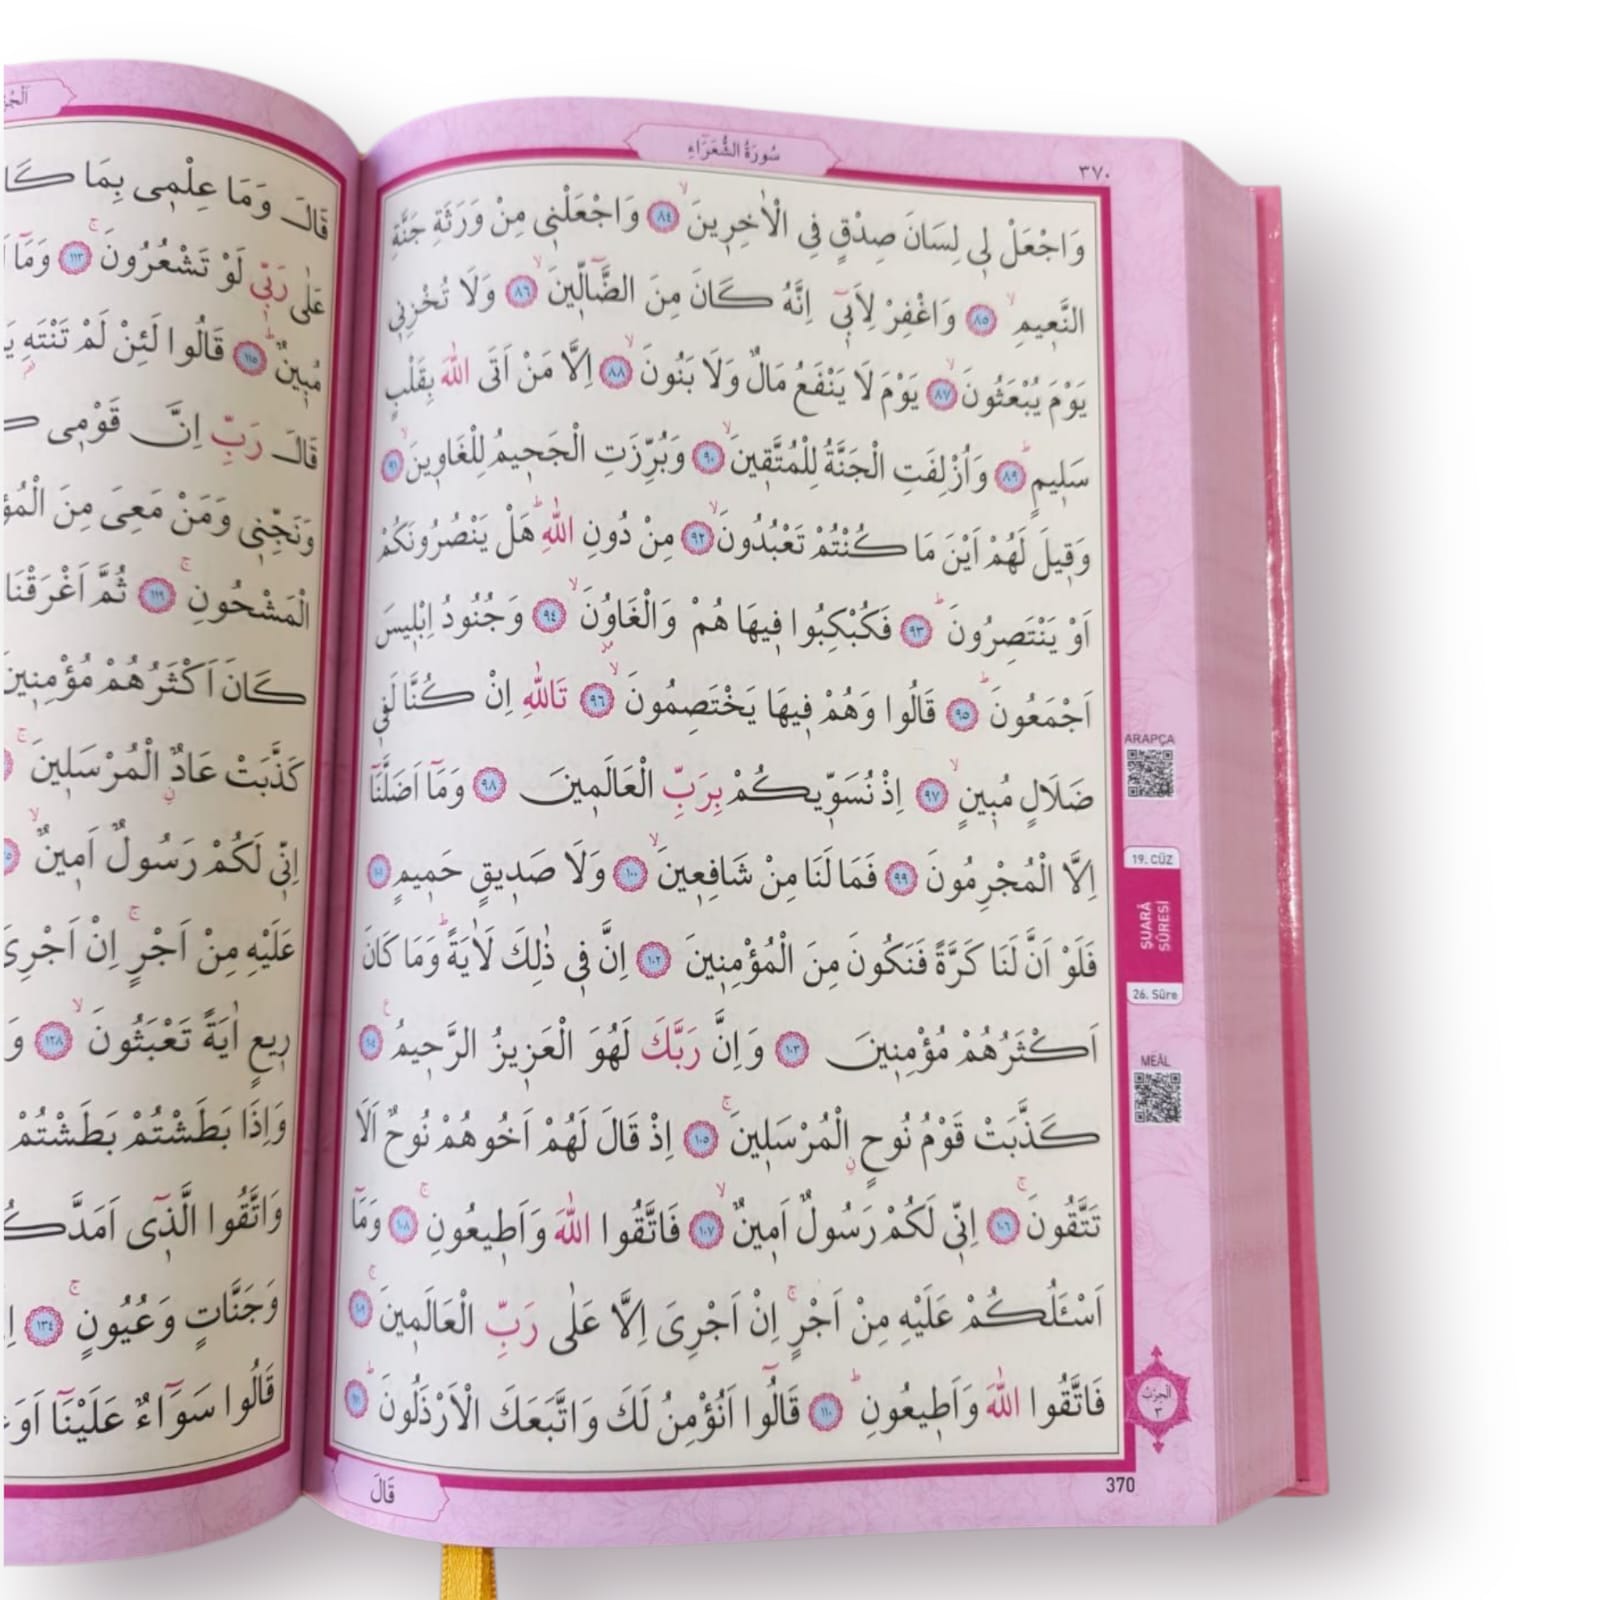 سُورَةُ الشُّعَرَاءِ
٣٧٠
وَاجْعَلْ لِي لِسَانَ صِدْقٍ فِي الْاٰخِرِينَ ۙ ﴿٨٤﴾ وَاجْعَلْنِي مِنْ وَرَثَةِ جَنَّةِ
النَّعِيمِ ۙ ﴿٨٥﴾ وَاغْفِرْ لِاَبِٓي اِنَّهُ كَانَ مِنَ الضَّٓالِّينَ ۙ ﴿٨٦﴾ وَلَا تُخْزِنِي
يَوْمَ يُبْعَثُونَ ۙ ﴿٨٧﴾ يَوْمَ لَا يَنْفَعُ مَالٌ وَلَا بَنُونَ ۙ ﴿٨٨﴾ اِلَّا مَنْ اَتَى اللّٰهَ بِقَلْبٍ
سَلِيمٍ ۜ ﴿٨٩﴾ وَاُزْلِفَتِ الْجَنَّةُ لِلْمُتَّقِينَ ۙ ﴿٩٠﴾ وَبُرِّزَتِ الْجَحِيمُ لِلْغَاوِينَ ۙ ﴿٩١﴾
وَقِيلَ لَهُمْ اَيْنَ مَا كُنْتُمْ تَعْبُدُونَ ۙ ﴿٩٢﴾ مِنْ دُونِ اللّٰهِ ۜ هَلْ يَنْصُرُونَكُمْ
اَوْ يَنْتَصِرُونَ ۜ ﴿٩٣﴾ فَكُبْكِبُوا فِيهَا هُمْ وَالْغَاوُنَ ۙ ﴿٩٤﴾ وَجُنُودُ اِبْلِيسَ
اَجْمَعُونَ ۜ ﴿٩٥﴾ قَالُوا وَهُمْ فِيهَا يَخْتَصِمُونَ ۙ ﴿٩٦﴾ تَاللّٰهِ اِنْ كُنَّا لَفِي
ضَلَالٍ مُبِينٍ ۙ ﴿٩٧﴾ اِذْ نُسَوِّيكُمْ بِرَبِّ الْعَالَمِينَ ﴿٩٨﴾ وَمَٓا اَضَلَّنَٓا
اِلَّا الْمُجْرِمُونَ ﴿٩٩﴾ فَمَا لَنَا مِنْ شَافِعِينَ ۙ ﴿١٠٠﴾ وَلَا صَدِيقٍ حَمِيمٍ ﴿١٠١﴾
فَلَوْ اَنَّ لَنَا كَرَّةً فَنَكُونَ مِنَ الْمُؤْمِنِينَ ﴿١٠٢﴾ اِنَّ فِي ذٰلِكَ لَاٰيَةً ۜ وَمَا كَانَ
اَكْثَرُهُمْ مُؤْمِنِينَ ﴿١٠٣﴾ وَاِنَّ رَبَّكَ لَهُوَ الْعَزِيزُ الرَّحِيمُ ﴿١٠٤﴾
كَذَّبَتْ قَوْمُ نُوحٍ الْمُرْسَلِينَ ۚ ﴿١٠٥﴾ اِذْ قَالَ لَهُمْ اَخُوهُمْ نُوحٌ اَلَا
تَتَّقُونَ ۚ ﴿١٠٦﴾ اِنِّي لَكُمْ رَسُولٌ اَمِينٌ ۙ ﴿١٠٧﴾ فَاتَّقُوا اللّٰهَ وَاَطِيعُونِ ۚ ﴿١٠٨﴾ وَمَٓا
اَسْـَٔلُكُمْ عَلَيْهِ مِنْ اَجْرٍ ۚ اِنْ اَجْرِيَ اِلَّا عَلٰى رَبِّ الْعَالَمِينَ ۚ ﴿١٠٩﴾
فَاتَّقُوا اللّٰهَ وَاَطِيعُونِ ۜ ﴿١١٠﴾ قَالُٓوا اَنُؤْمِنُ لَكَ وَاتَّبَعَكَ الْاَرْذَلُونَ ۜ ﴿١١١﴾
قَالَ
370
ARAPÇA
19. CÜZ
ŞUARÂ
SÛRESİ
26. Sûre
MEÂL
اَلْحِزْبُ
٣
قَالَ وَمَا عِلْمِي بِمَا
عَلٰى رَبِّي لَوْ تَشْعُرُونَ ۚ ﴿١١٣﴾ وَمَٓا
مُبِينٌ ۜ ﴿١١٥﴾ قَالُوا لَئِنْ لَمْ تَنْتَهِ
قَالَ رَبِّ اِنَّ قَوْمِي
وَنَجِّنِي وَمَنْ مَعِيَ مِنَ
الْمَشْحُونِ ۚ ﴿١١٩﴾ ثُمَّ اَغْرَقْنَا
كَانَ اَكْثَرُهُمْ مُؤْمِنِينَ
كَذَّبَتْ عَادٌ الْمُرْسَلِينَ ۚ
اِنِّي لَكُمْ رَسُولٌ اَمِينٌ ۙ
عَلَيْهِ مِنْ اَجْرٍ ۚ اِنْ اَجْرِيَ
رِيعٍ اٰيَةً تَعْبَثُونَ ۙ ﴿١٢٨﴾
وَاِذَا بَطَشْتُمْ بَطَشْتُمْ
وَاتَّقُوا الَّذِٓي اَمَدَّكُمْ
وَجَنَّاتٍ وَعُيُونٍ ۚ ﴿١٣٤﴾
قَالُوا سَوَٓاءٌ عَلَيْنَٓا